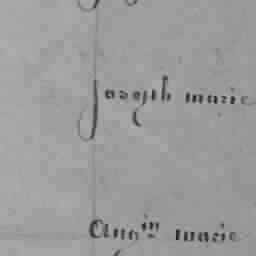 Joseph marie
Aug.in marie